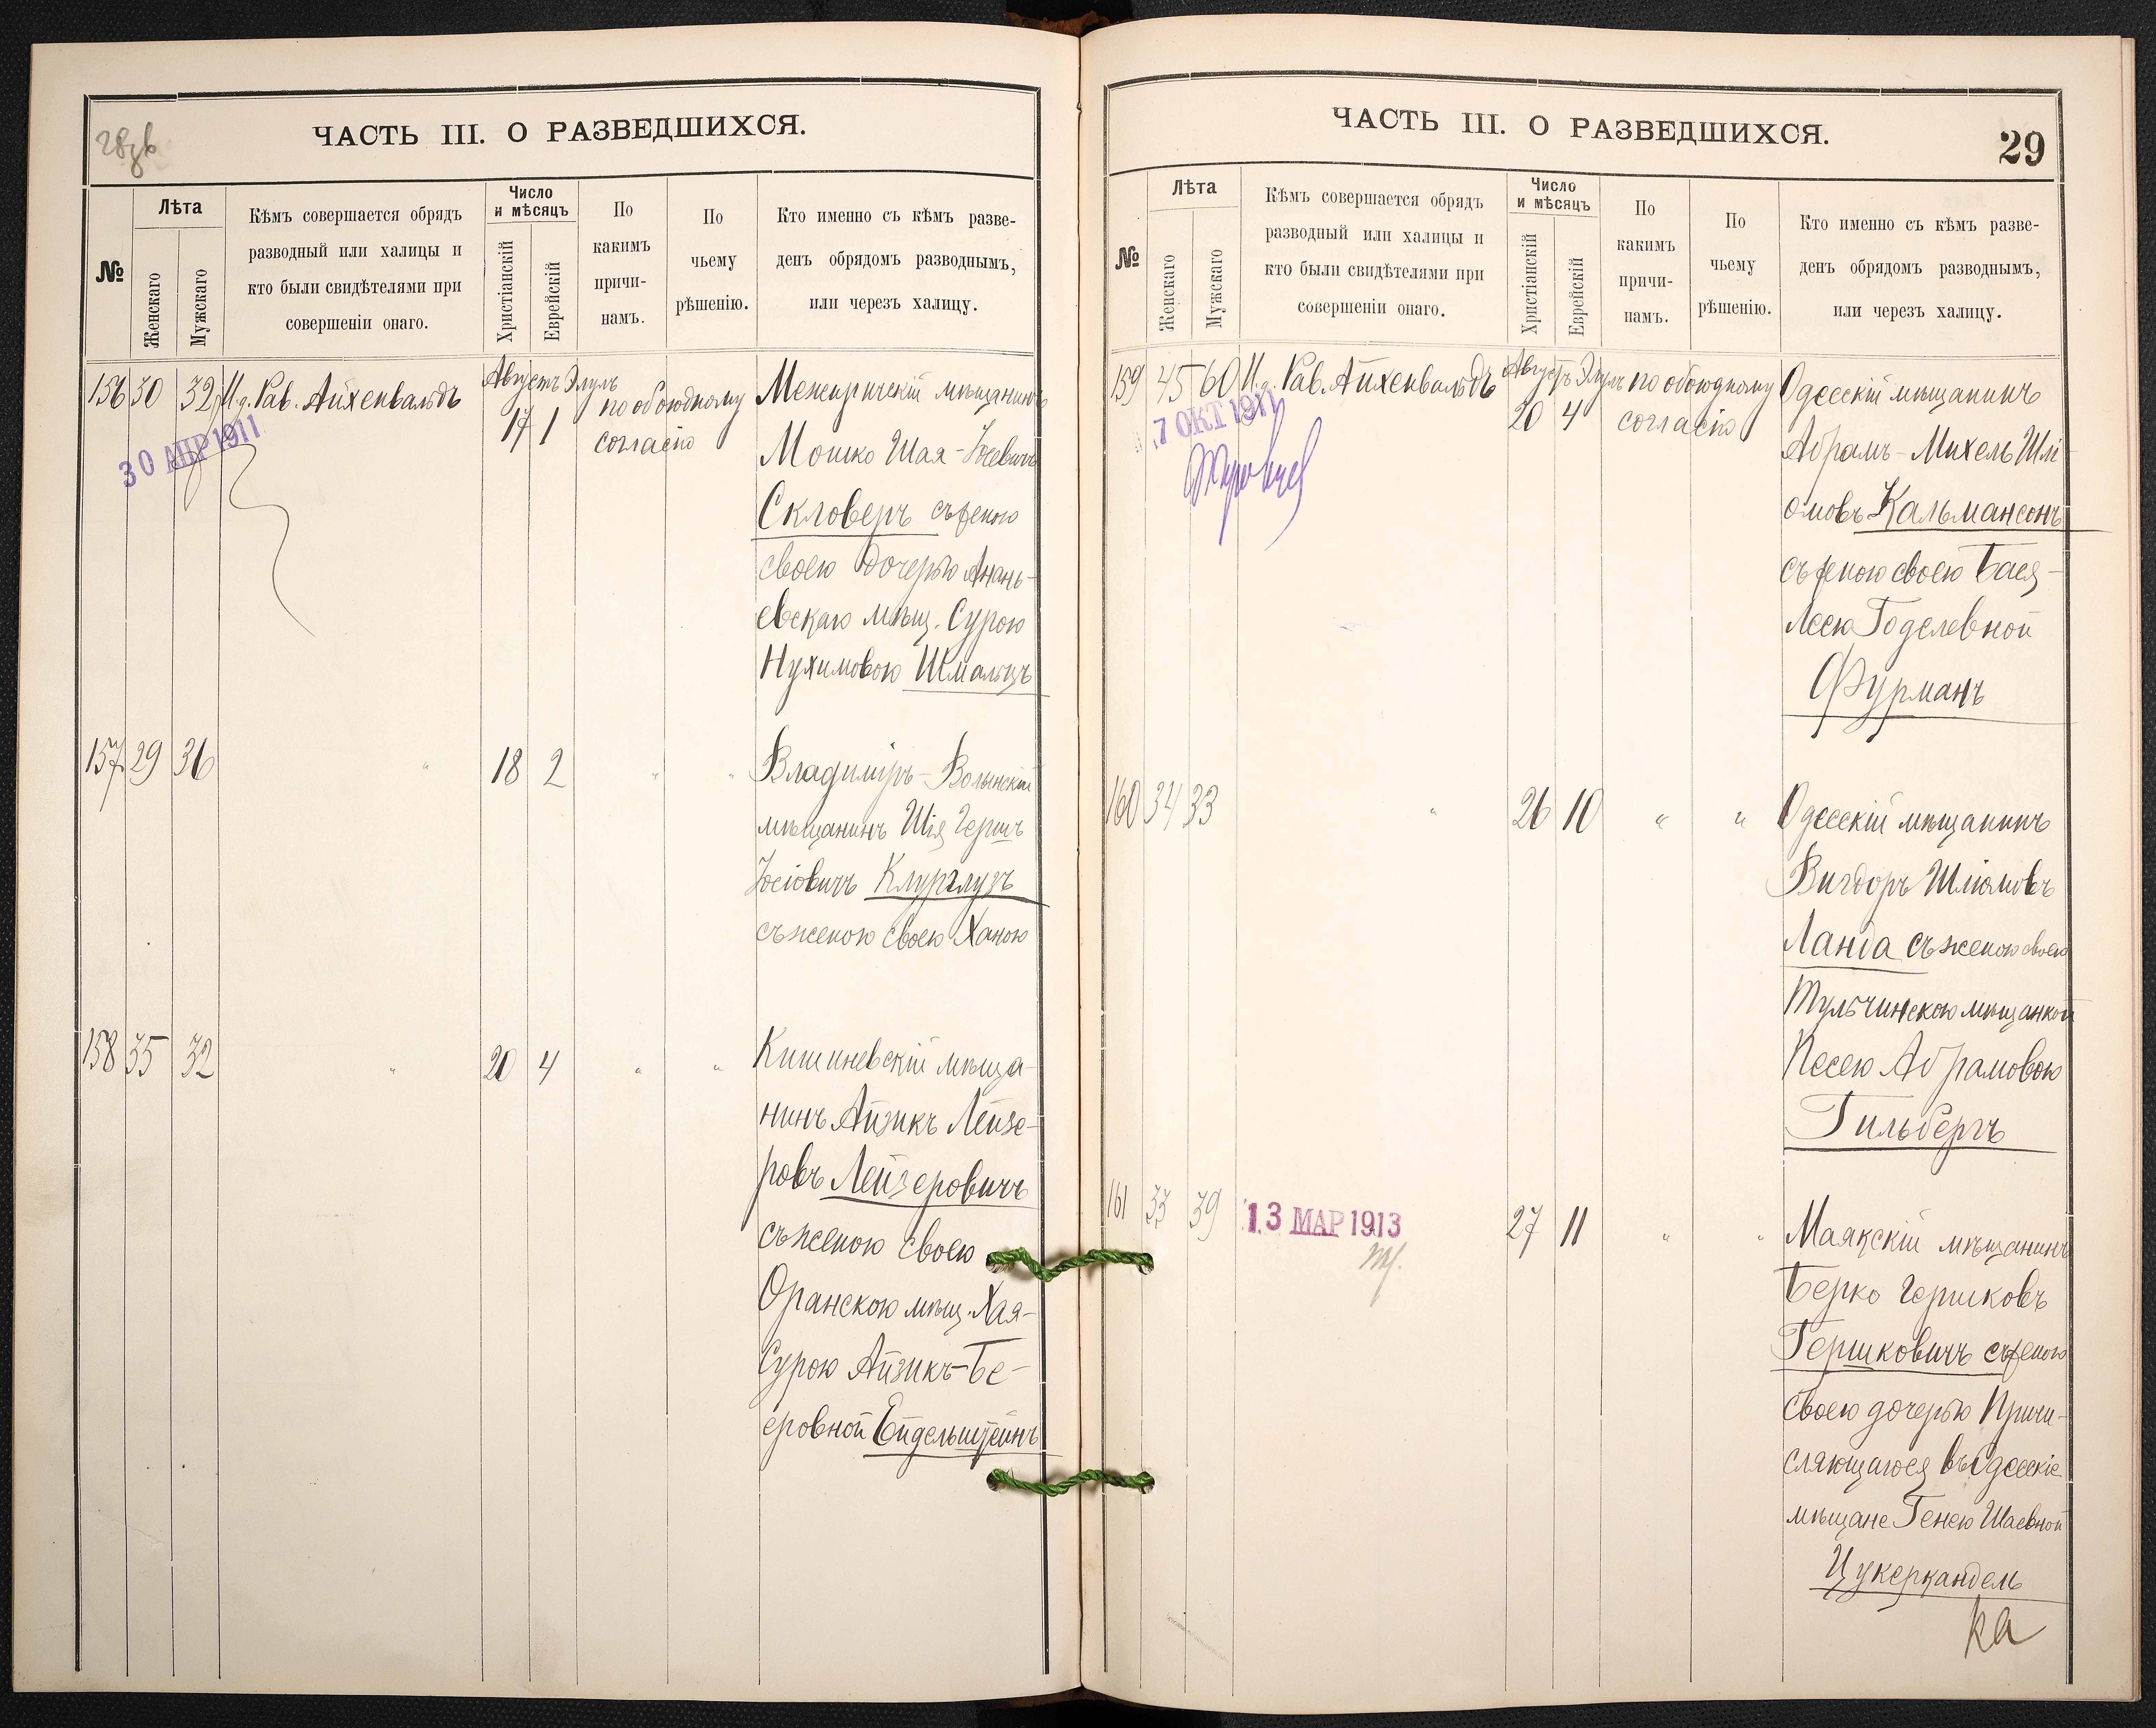 28 зв
ЧАСТЬ III. О РАЗВЕДШИХСЯ.
№
Лѣта
Женскаго
Мужскаго
Кѣмъ совершается обрядъ
разводный или халицы и
кто были свидѣтелями при
совершеніи онаго.
Число
и мѣсяцъ
Христіанскій
Еврейскій
По
какимъ
причи-
намъ.
По
чьему
рѣшенію.
Кто именно съ кѣмъ разве-
денъ обрядомъ разводнымъ,
или черезъ халицу.
156 30 32 И.д. Рав. Айхенвальдъ Августъ 17 Элулъ 1 по обоюдному согласію
30 АПР 1911
Межиричскій мѣщанинъ
Мошко Шая-
Скловеръ съ женою
своею дочерью Анань-
евскаго мѣщ. Сурою
Нухимовою Шмальцъ
157 29 36 " 18 2 " "
Владиміръ-Волынскій
мѣщанинъ Шія Гершъ
Іосіовичъ Клурглузъ
съ женою своею Ханою
158 35 32 " 20 4 " "
Кишиневскій мѣща-
нинъ Айзикъ Лейзе-
ровъ Лейзеровичъ
съ женою своею
Оранскою мѣщ. Хая-
Сурою Айзикъ-Бе-
еровной Ейдельштейнъ
ЧАСТЬ III. О РАЗВЕДШИХСЯ.
29
№
Лѣта
Женскаго
Мужскаго
Кѣмъ совершается обрядъ
разводный или халицы и
кто были свидѣтелями при
совершеніи онаго.
Число
и мѣсяцъ
Христіанскій
Еврейскій
По
какимъ
причи-
намъ.
По
чьему
рѣшенію.
Кто именно съ кѣмъ разве-
денъ обрядомъ разводнымъ,
или черезъ халицу.
159 45 60 И.д. Рав. Айхенвальдъ Августъ 20 Элулъ 4 по обоюдному согласію
7 ОКТ 1911
Одесскій мѣщанинъ
Абрамъ-Михель Шлі-
омовъ Кальмансонъ
съ женою своею Бася-
Леею Годелевной
Фурманъ
160 34 33 " 26 10 " "
Одесскій мѣщанинъ
Вигдоръ Шліомовъ
Ланда съ женою своею
Тульчинскою мѣщанкой
Песею Абрамовою
Гильбергъ
161 33 39 27 11 " "
13 МАР 1913
Маякскій мѣщанинъ
Берко Гершковъ
Гершковичъ съ женою
своею дочерью Причи-
сляющагося въ Одесскіе
мѣщане Генею Шаевной
Цукеркандель